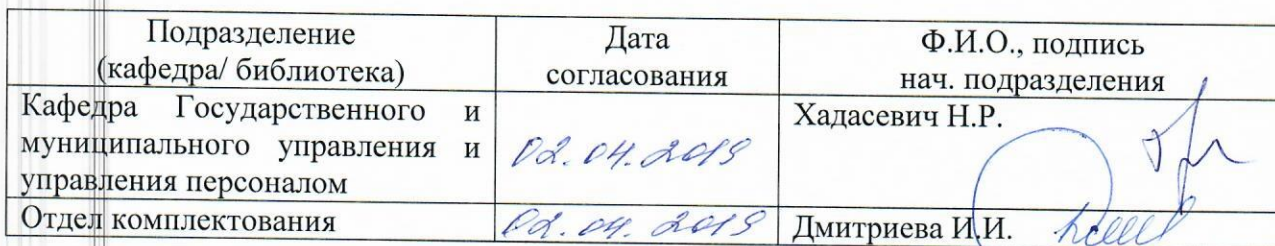 Подразделение
(кафедра/ библиотека)
Дата
согласования
Ф.И.О., подпись
нач. подразделения
Кафедра Государственного и
муниципального управления и
управления персоналом
02.04.2019
Хадасевич Н.Р.
Отдел комплектования
02.04.2019
Дмитриева И.И.